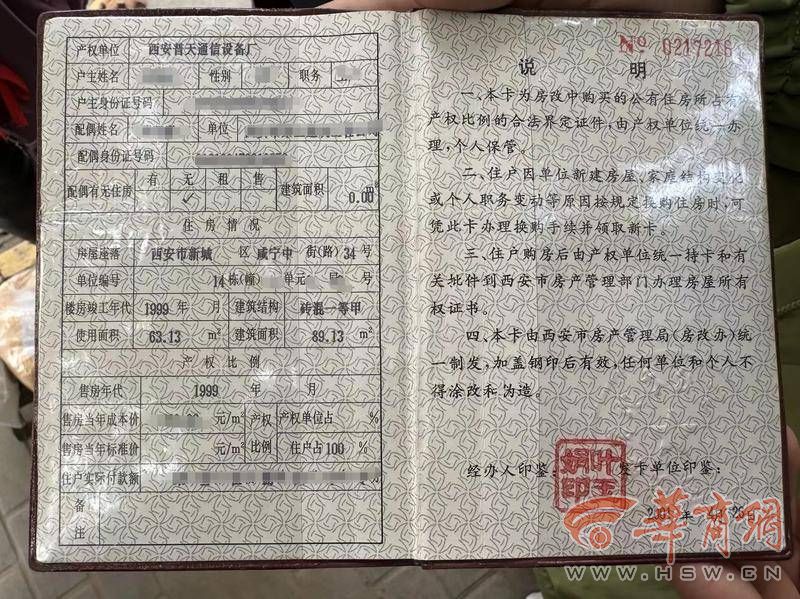 产权单位 西安普天通信设备厂
户主姓名 性别 职务
户主身份证号码
配偶姓名 单位
配偶身份证号码
配偶有无住房 有 无 租 售 建筑面积 0.00 m²
✓
住房情况
房屋座落 西安市新城 区 咸宁中 街(路) 34 号
单位编号 14 栋(幢) 单元 号
楼房竣工年代 1999 年 月 建筑结构 砖混一等甲
使用面积 63.13 m² 建筑面积 89.13 m²
产权比例
售房年代 1999 年 月
售房当年成本价 元/m² 产权 产权单位占 %
售房当年标准价 元/m² 比例 住户占 100 %
住户实际付款额
备注
№ 0217216
说 明
一、本卡为房改中购买的公有住房所占有
产权比例的合法界定证件，由产权单位统一办
理，个人保管。
二、住户因单位新建房屋、家庭结构变化
或个人职务变动等原因按规定换购住房时，可
凭此卡办理换购手续并领取新卡。
三、住户购房后由产权单位统一持卡和有
关批件到西安市房产管理部门办理房屋所有
权证书。
四、本卡由西安市房产管理局(房改办)统
一制发，加盖钢印后有效，任何单位和个人不
得涂改和伪造。
经办人印鉴： 发卡单位印鉴：
叶玉娟印
年 月 29日
华商网
WWW.HSW.CN